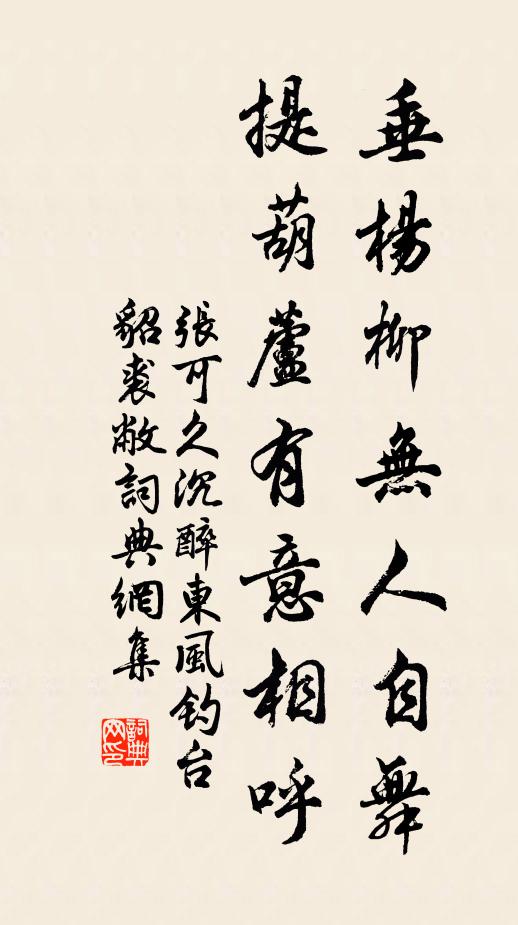 垂楊柳無人自舞
提葫蘆有意相呼
張可久沉醉東風釣台
貂裘敝詞典網集
詞典網印